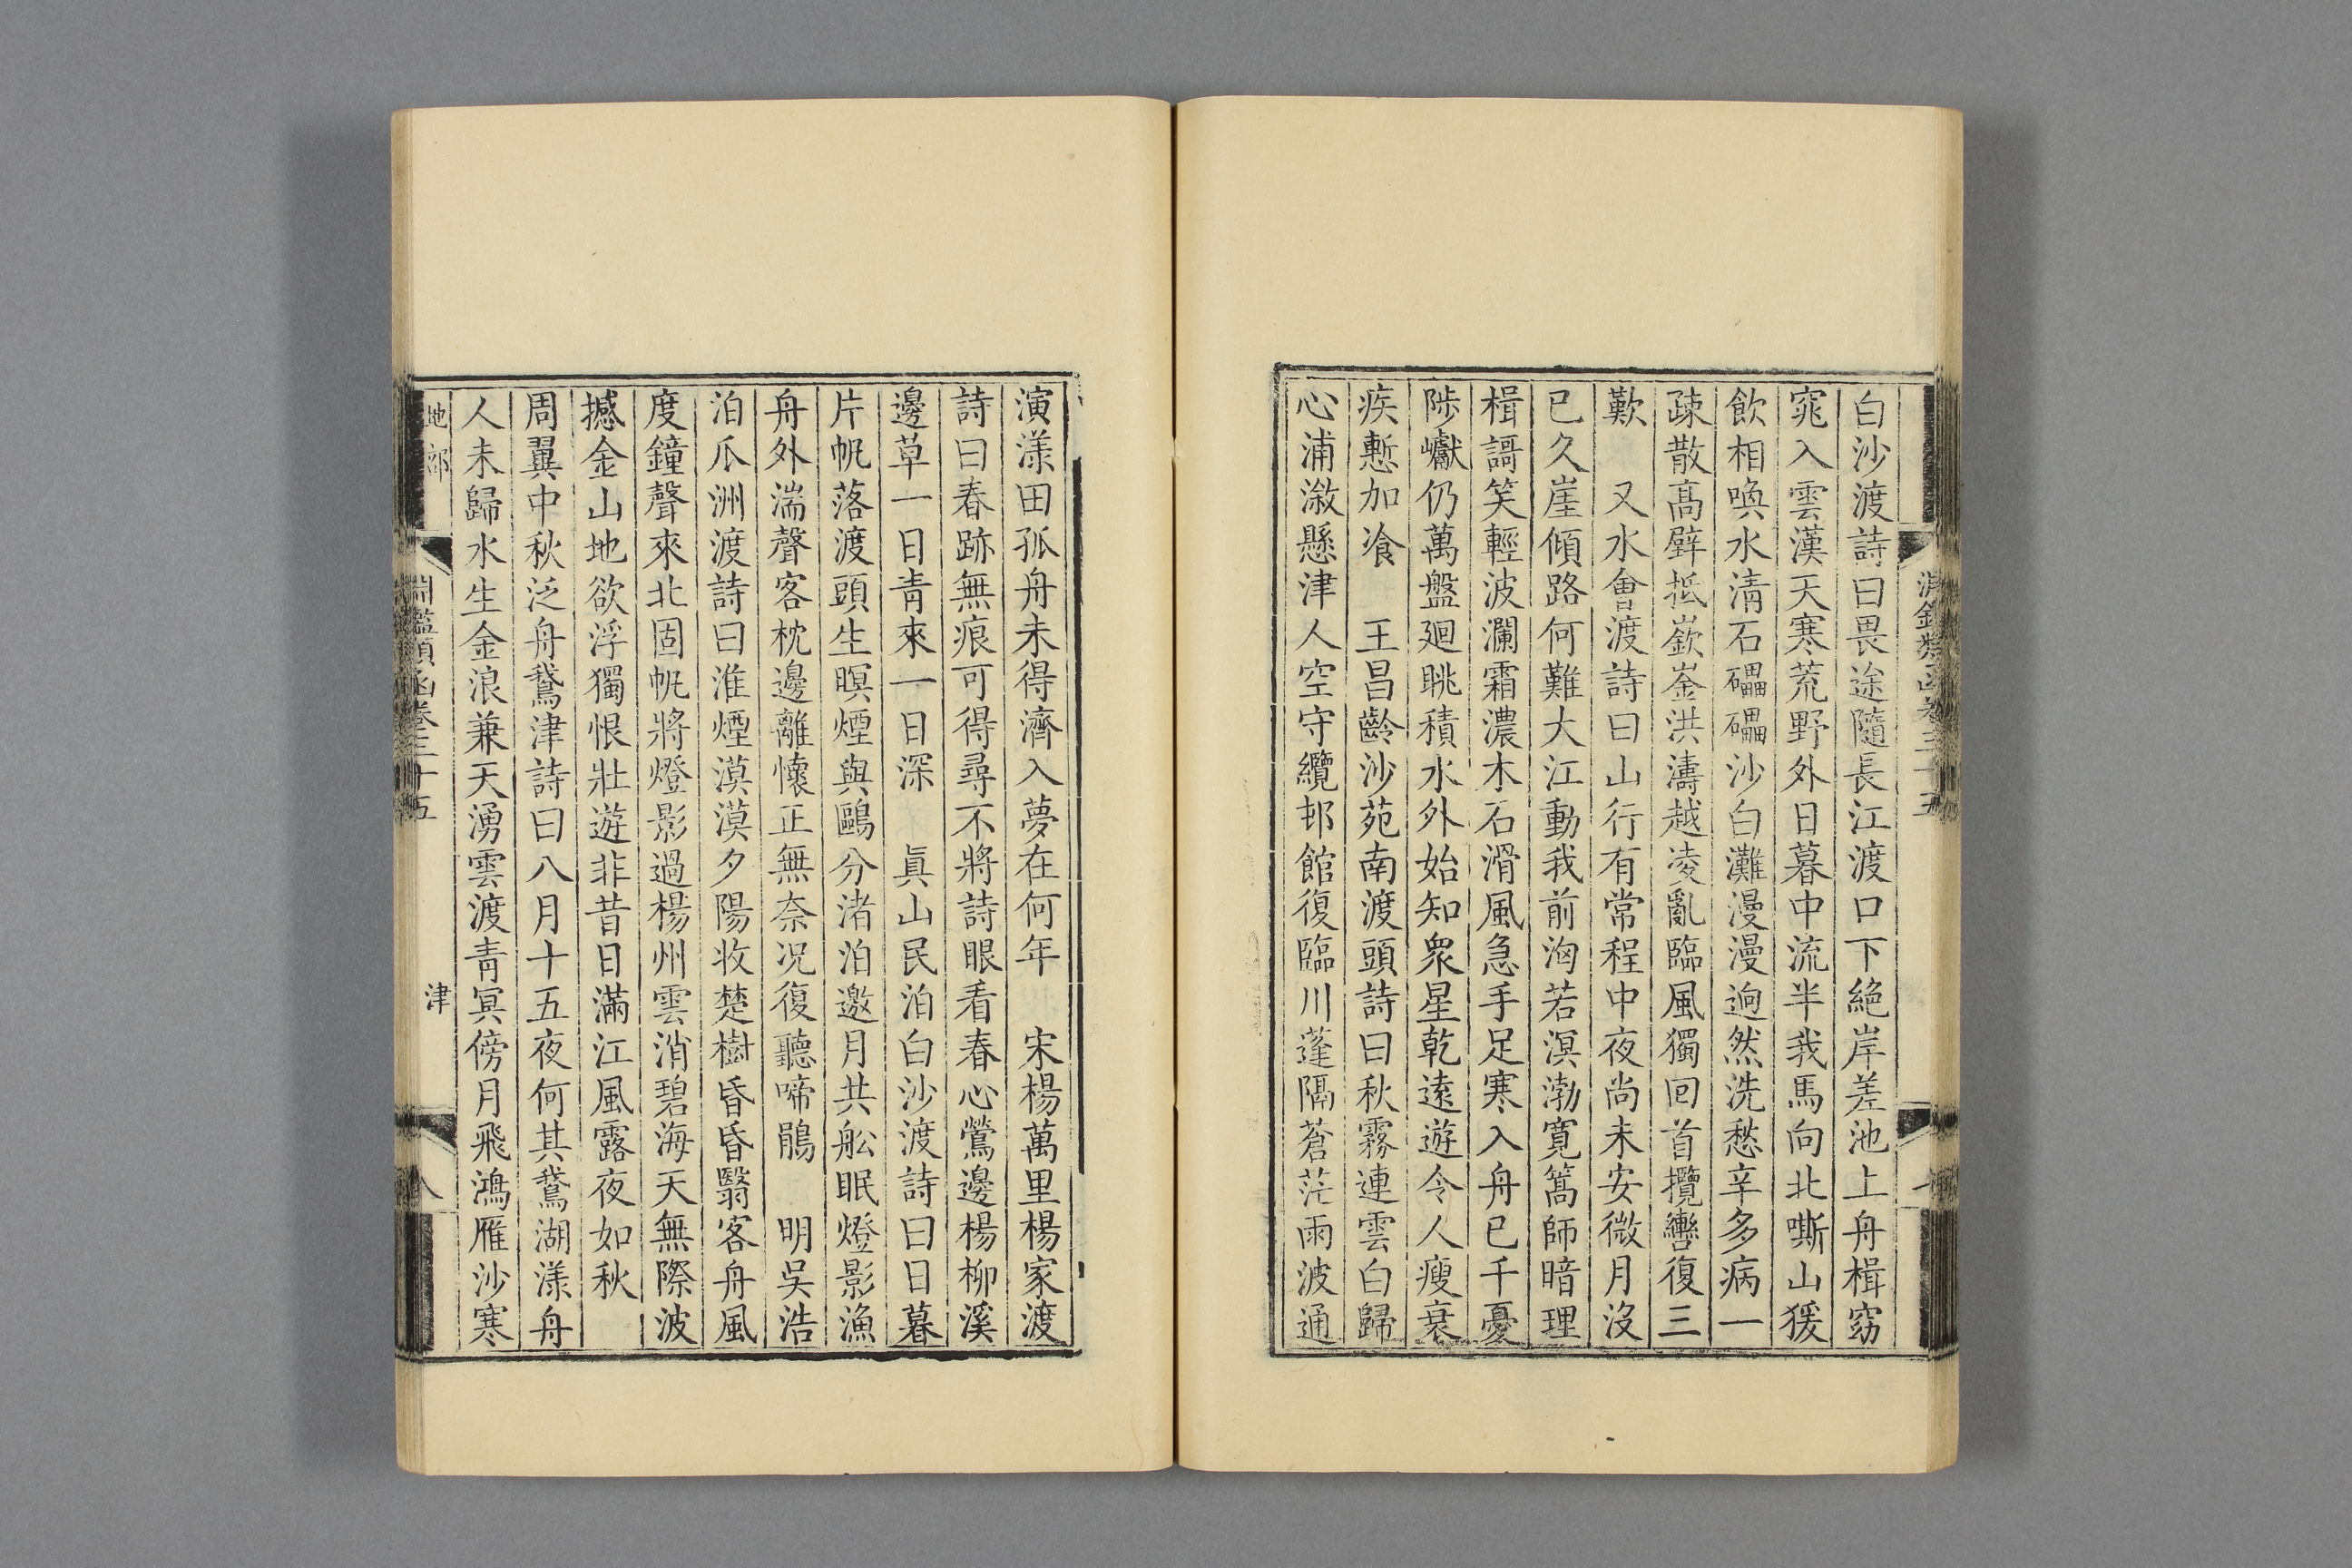 白沙渡詩曰畏途隨長江渡口下絶岸差池上舟楫窈
窕入雲漢天寒荒野外日暮中流半我馬向北嘶山猨
飲相喚水清石礧礧沙白灘漫漫逈然洗愁辛多病一
疎散髙壁抵嶔崟洪濤越凌亂臨風獨回首攬轡復三
歎　又水會渡詩曰山行有常程中夜尚未安微月沒
已久崖傾路何難大江動我前洶若溟渤寛篙師暗理
楫謌笑輕波瀾霜濃木石滑風急手足寒入舟已千憂
陟巘仍萬盤廻眺積水外始知衆星乾逺遊令人瘦衰
疾慙加飡　王昌齡沙苑南渡頭詩曰秋霧連雲白歸
心浦漵懸津人空守纜邨館復臨川蓬隔蒼茫雨波通
演漾田孤舟未得濟入夢在何年　宋楊萬里楊家渡
詩曰春跡無痕可得尋不將詩眼看春心鶯邊楊柳溪
邊草一日青來一日深　眞山民泊白沙渡詩曰日暮
片帆落渡頭生暝煙與鷗分渚泊邀月共舩眠燈影漁
舟外湍聲客枕邊離懷正無奈况復聽啼鵑　明吴浩
泊爪洲渡詩曰淮煙漠漠夕陽收楚樹昏昏翳客舟風
度鐘聲來北固帆將燈影過楊州雲消碧海天無際波
撼金山地欲浮獨恨壯遊非昔日滿江風露夜如秋
周翼中秋泛舟鵞津詩曰八月十五夜何其鵞湖漾舟
人未歸水生金浪兼天湧雲渡青冥傍月飛鴻雁沙寒
地部
淵鑑類函卷三十五
津
八